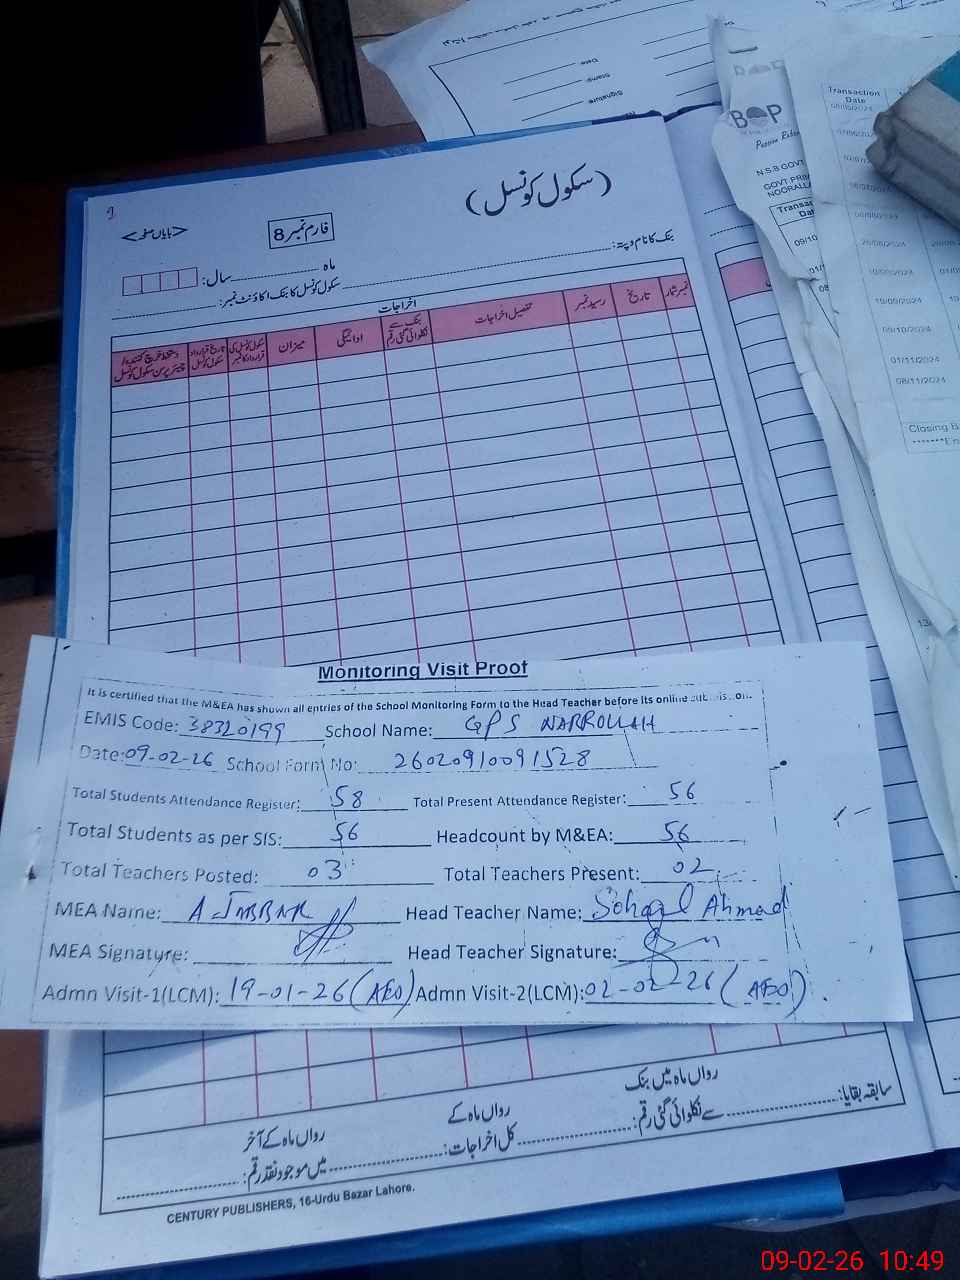 Date:
Stamp:
Signature:
BOP
Passion Reborn
N.S.B GOVT
GOVT PRI
Transaction
Date
08/05/2024
10/09/2024
09/10/2024
01/11/2024
08/11/2024
Closing B
(سکول کونسل)
فارم نمبر 8
<بایاں صفحہ>
بنک کا نام و پتہ:
ماہ سال:
سکول کونسل کا بنک اکاؤنٹ نمبر:
اخراجات
نمبر شمار تاریخ رسید نمبر تفصیل اخراجات بنک سے نکلوائی گئی رقم ادائیگی میزان سکول کونسل کی قرارداد کا نمبر تاریخ قرارداد سکول کونسل
Monitoring Visit Proof
It is certified that the M&EA has shown all entries of the School Monitoring Form to the Head Teacher before its online submission.
EMIS Code: 38320199 School Name: GPS NARROLLAH
Date: 09-02-26 School Form No: 26020910091528
Total Students Attendance Register: 58 Total Present Attendance Register: 56
Total Students as per SIS: 56 Headcount by M&EA: 56
Total Teachers Posted: 03 Total Teachers Present: 02
MEA Name: A JABBAR Head Teacher Name: Sohail Ahmad
MEA Signature: Head Teacher Signature:
Admn Visit-1(LCM): 19-01-26 (AEO) Admn Visit-2(LCM): 02-02-26 (AEO).
سابقہ بقایا: رواں ماہ میں بنک سے نکلوائی گئی رقم: رواں ماہ کے کل اخراجات: رواں ماہ کے آخر میں موجود نقد رقم:
CENTURY PUBLISHERS, 16-Urdu Bazar Lahore.
09-02-26 10:49